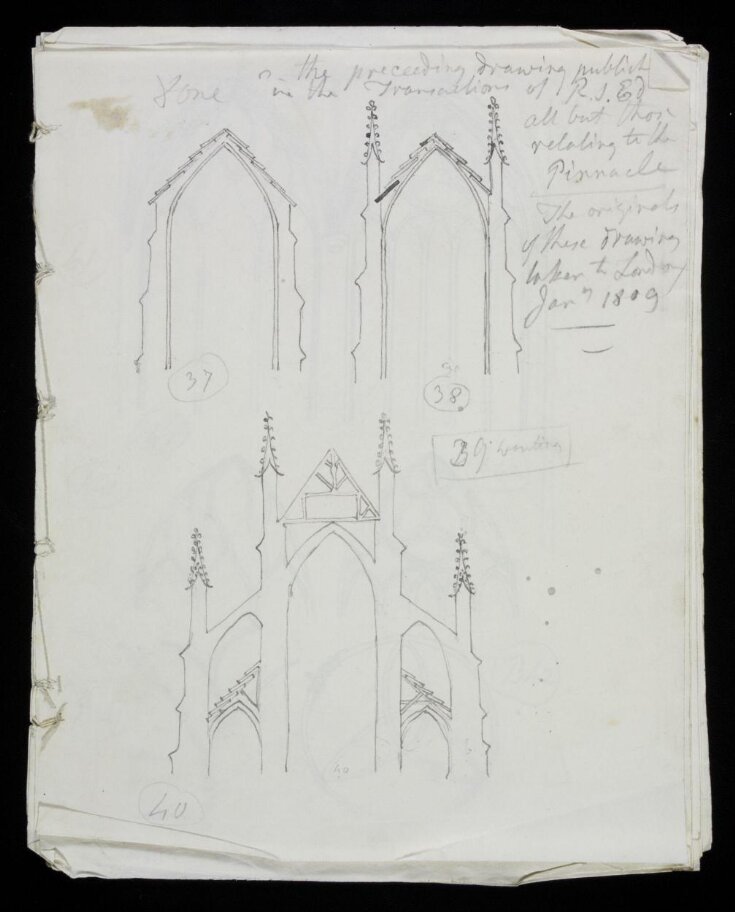 the preceeding drawing publish
8 one in the Transactions of R.S.Ed
all but those
relating to the
Pinnacle
The originals
of these drawing
taken to London
Jany 1809
37
38
39 wanting
40
40